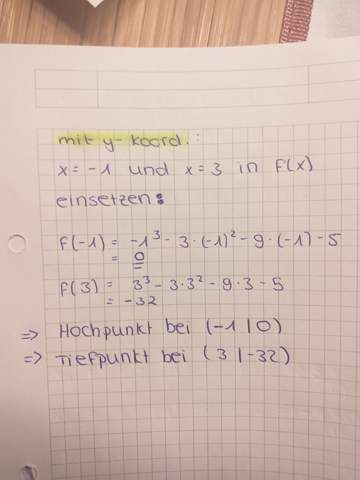 mit y-koord.:
x = -1 und x = 3 in f(x)
einsetzen:
f(-1) = -1³ - 3·(-1)² - 9·(-1) - 5
= 0
f(3) = 3³ - 3·3² - 9·3 - 5
= -32
⇒ Hochpunkt bei (-1|0)
⇒ Tiefpunkt bei (3|-32)